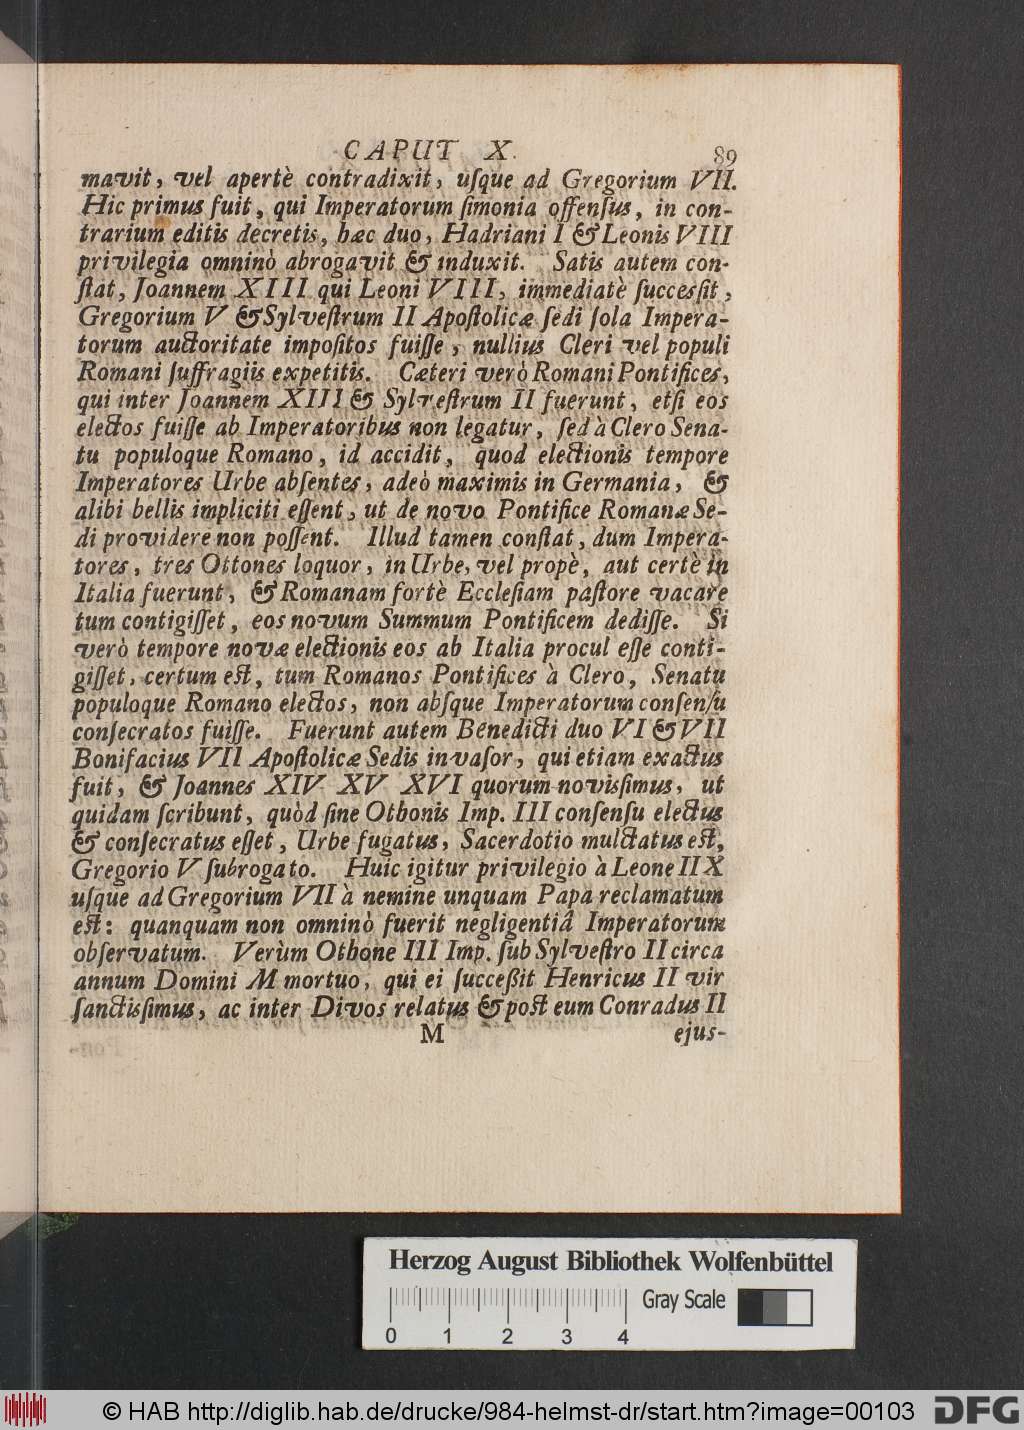 CAPUT X. 89
mavit, vel apertè contradixit, uſque ad Gregorium VII.
Hic primus fuit, qui Imperatorum ſimonia offenſus, in con-
trarium editis decretis, hæc duo, Hadriani I & Leonis VIII
privilegia omninò abrogavit & induxit. Satis autem con-
ſtat, Joannem XIII qui Leoni VIII, immediatè ſucceſſit,
Gregorium V & Sylveſtrum II Apoſtolicæ ſedi ſola Impera-
torum auctoritate impoſitos fuiſſe, nullius Cleri vel populi
Romani ſuffragiis expetitis. Cæteri verò Romani Pontifices,
qui inter Joannem XIII & Sylveſtrum II fuerunt, etſi eos
electos fuiſſe ab Imperatoribus non legatur, ſed à Clero Sena-
tu populoque Romano, id accidit, quod electionis tempore
Imperatores Urbe abſentes, adeò maximis in Germania, &
alibi bellis impliciti eſſent, ut de novo Pontifice Romanæ Se-
di providere non poſſent. Illud tamen conſtat, dum Impera-
tores, tres Ottones loquor, in Urbe, vel propè, aut certè in
Italia fuerunt, & Romanam fortè Eccleſiam paſtore vacare
tum contigiſſet, eos novum Summum Pontificem dediſſe. Si
verò tempore novæ electionis eos ab Italia procul eſſe conti-
giſſet, certum eſt, tum Romanos Pontifices à Clero, Senatu
populoque Romano electos, non abſque Imperatorum conſenſu
conſecratos fuiſſe. Fuerunt autem Benedicti duo VI & VII
Bonifacius VII Apoſtolicæ Sedis invaſor, qui etiam exactus
fuit, & Joannes XIV XV XVI quorum noviſſimus, ut
quidam ſcribunt, quòd ſine Othonis Imp. III conſenſu electus
& conſecratus eſſet, Urbe fugatus, Sacerdotio mulctatus eſt,
Gregorio V ſubrogato. Huic igitur privilegio à Leone IIX
uſque ad Gregorium VII à nemine unquam Papa reclamatum
eſt: quanquam non omninò fuerit negligentiâ Imperatorum
obſervatum. Verùm Othone III Imp. ſub Sylveſtro II circa
annum Domini M mortuo, qui ei ſucceßit Henricus II vir
ſanctiſſimus, ac inter Divos relatus & poſt eum Conradus II
M ejus-
Herzog August Bibliothek Wolfenbüttel
Gray Scale
0 1 2 3 4
© HAB http://diglib.hab.de/drucke/984-helmst-dr/start.htm?image=00103 DFG